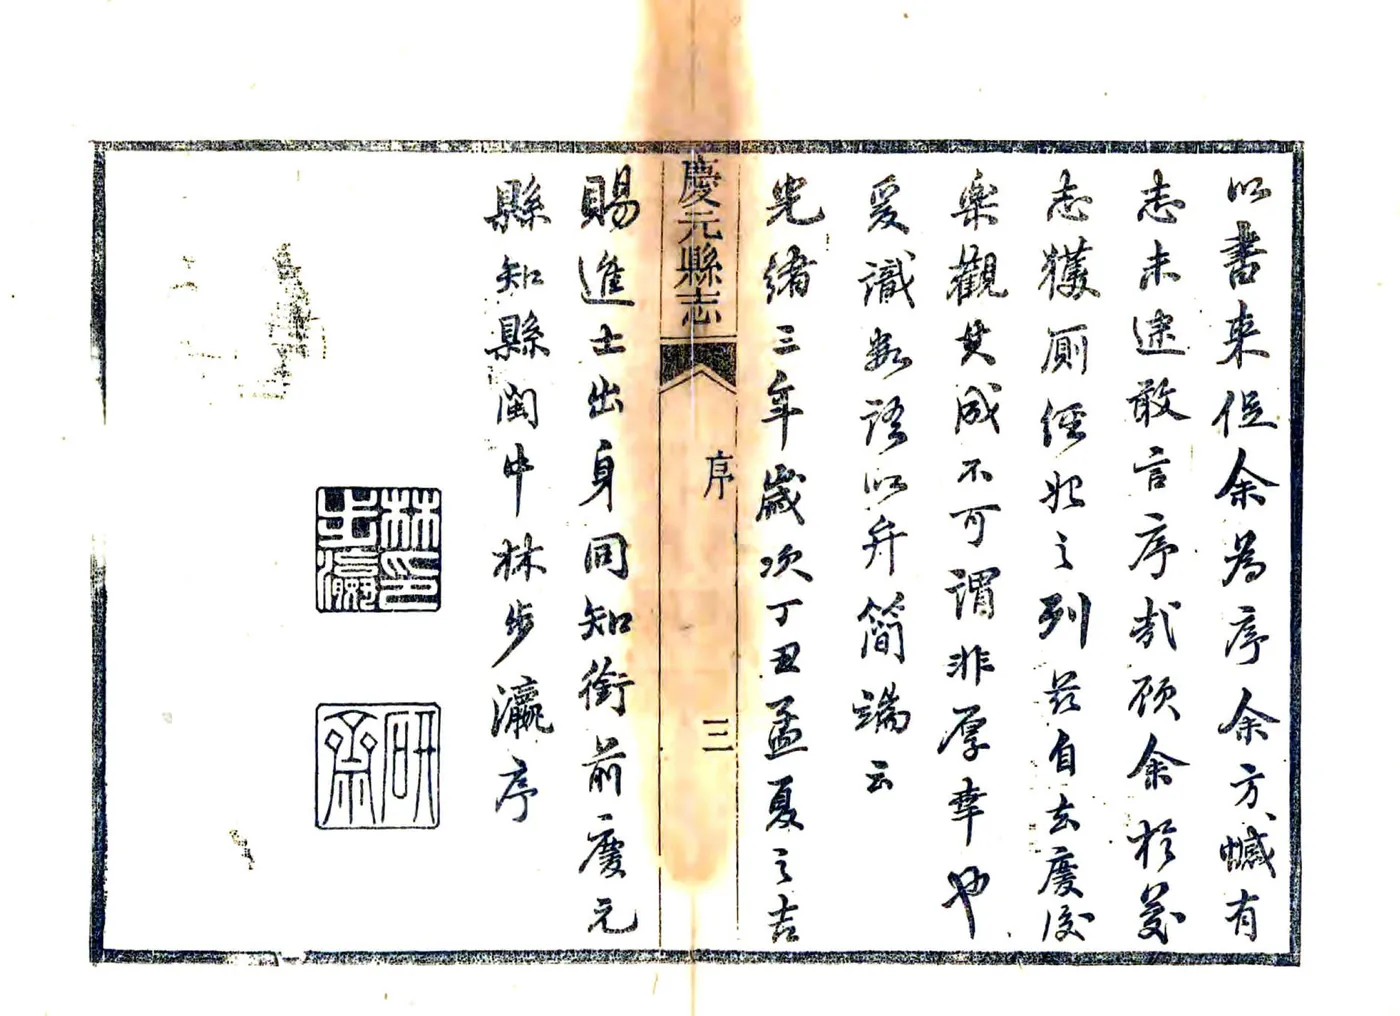 以書來促余為序余方憾有
志未逮敢言序哉顧余於茲
志獲厠經始之列茲自去慶後
樂觀其成不可謂非厚幸也
爰識數語以弁簡端云
光緒三年歲次丁丑孟夏之吉
慶元縣志
序
三
賜進士出身同知銜前慶元
縣知縣閩中林步瀛序
林印步瀛
研齋